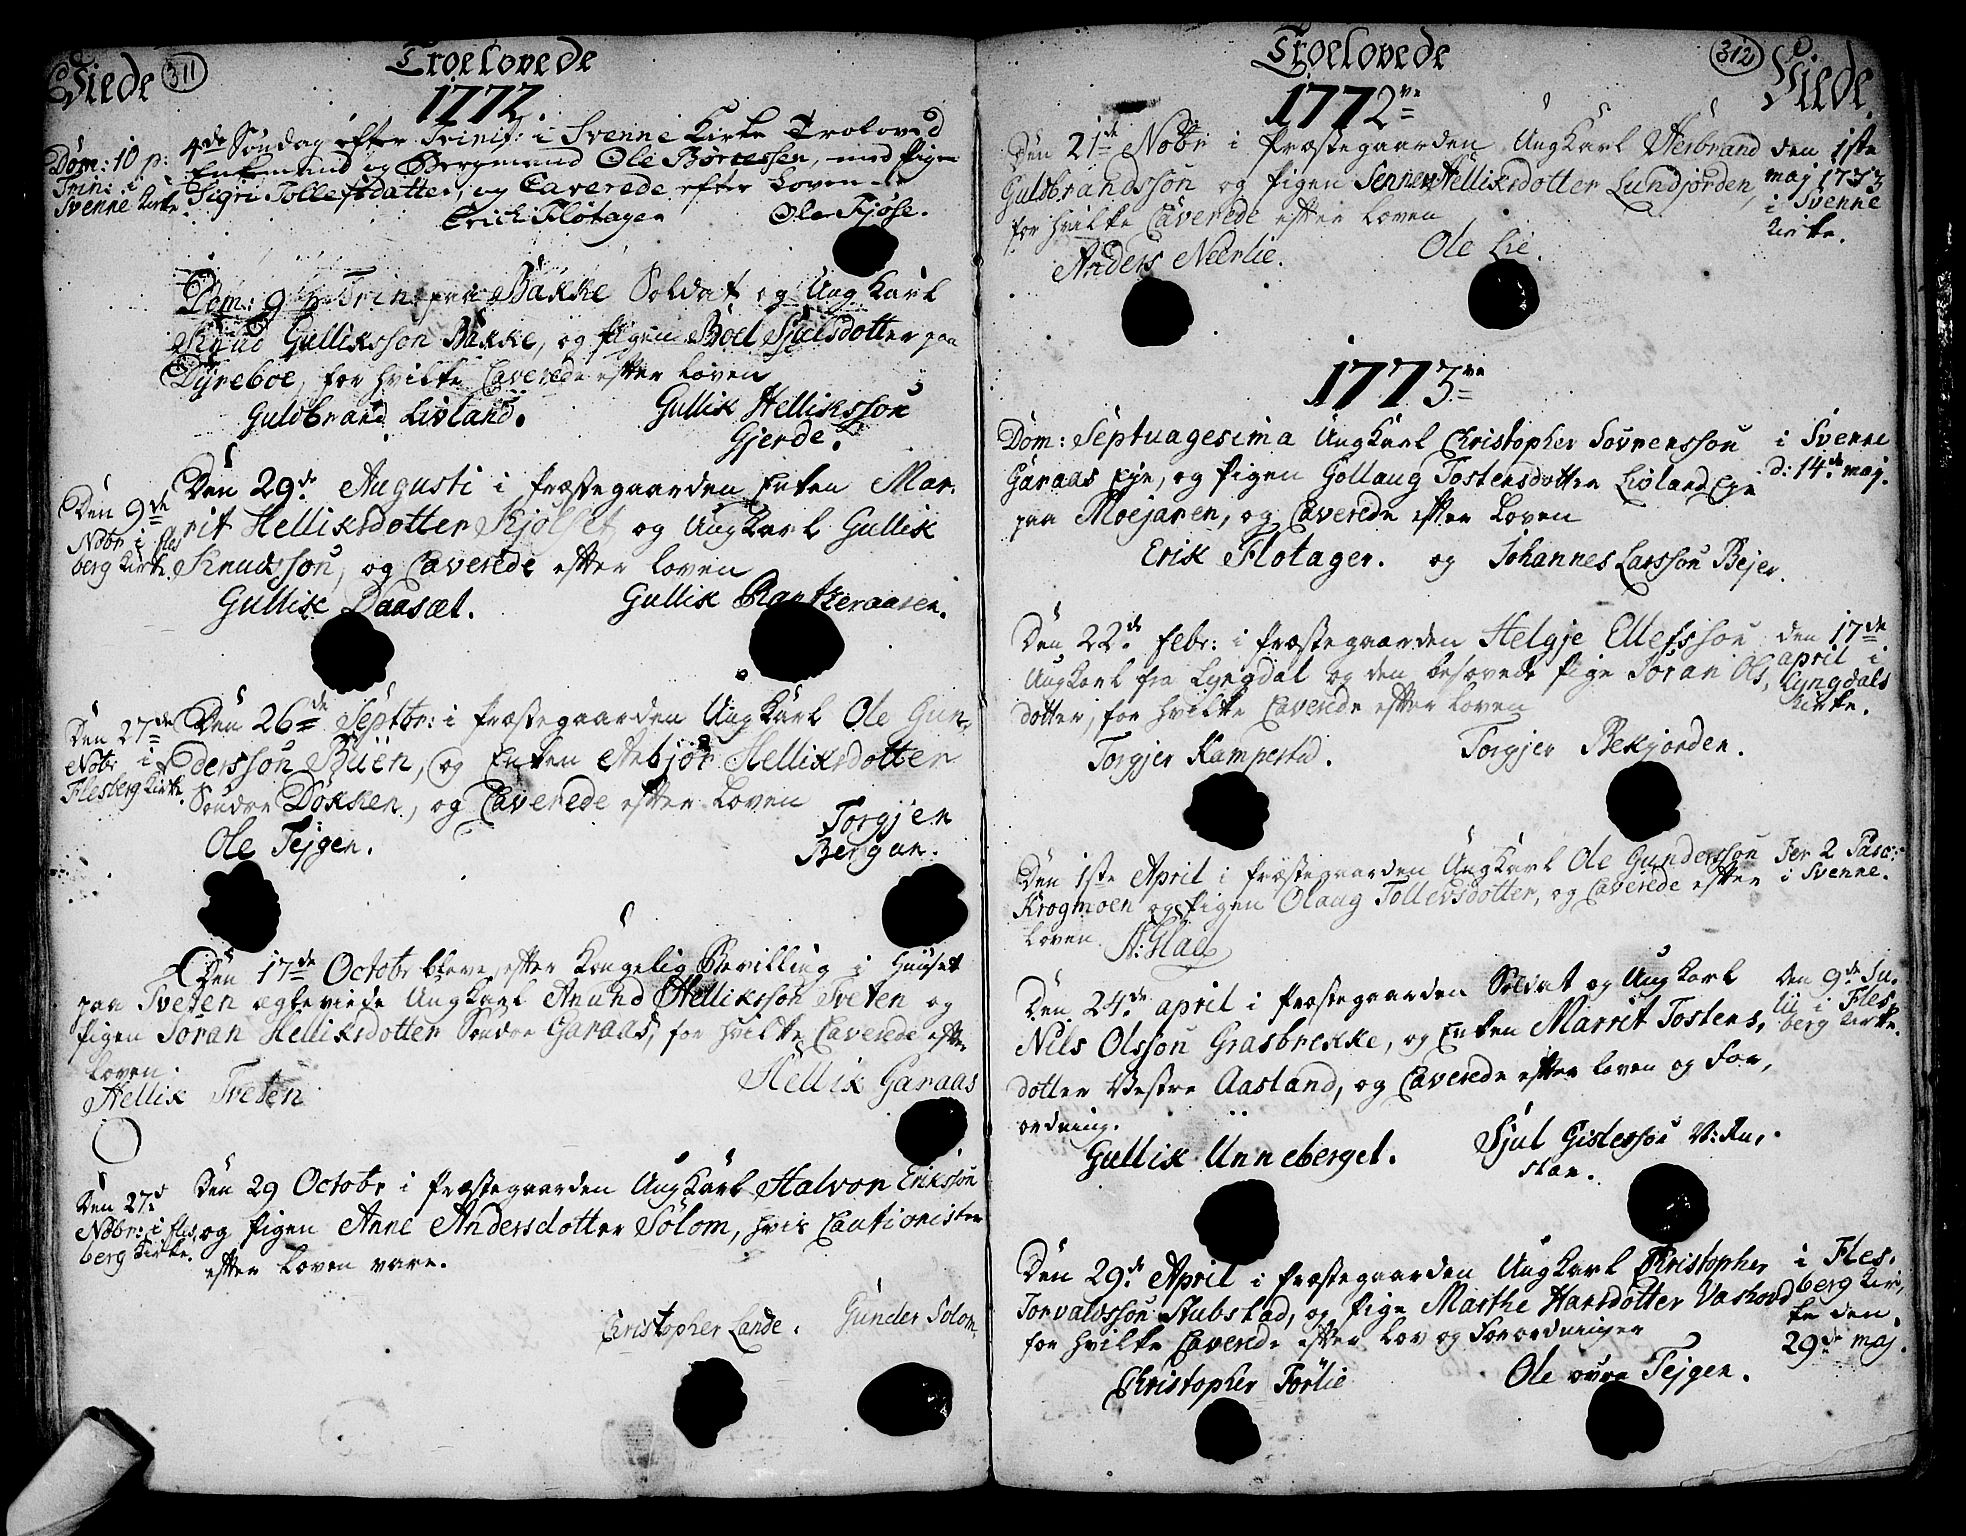 Viede 311 Troelovede
1772.
Dom: 10 p:
Trin: i
Svenne Kirke
4de Søndag efter Trinit: i Svenne Kirke Troloved
Enkemand og Bergmand Ole Børtessen, med Pigen
Sigri Tollefsdatter, og Caverede efter Loven
Erich Fløtager Ole Fjøse.
Dom: 9 p Trin: paa Bakke Soldat og Ung Karl
Knud Gulliksson Bakke, og Pigen Boel Sjulsdotter paa
Dyreboe, for hvilke Caverede efter Loven
Guldbrand Livland. Gullik Helliksson
Gjerde.
Den 9de
Nobr i Fles
berg Kirke.
Den 29de Augusti i Præstegaarden Enken Mar-
rit Helliksdotter Skjølset og Ung Karl Gullik
Knudsson, og Caverede efter Loven
Gullik Daasæt. Gullik Ranteraasen.
Den 27de
Nobr i
Flesberg Kirke
Den 26de Septbr: i Præstegaarden Ung Karl Ole Gun-
dersson Büen, og Enken Anbjør Helliksdotter
Søndre Døkken, og Caverede efter Loven
Ole Tejgen. Torgjen
Bergan.
Den 17de Octobr bleve efter Kongelig Bevilling i Huuset
paa Tveten ægteviede Ung Karl Anund Helliksson Tveten og
Pigen Joran Helliksdotter Søndre Garaas, for hvilke Caverede efter
Loven.
Hellik Tveten Hellik Garaas
Den 27d
Nobr: i Fles,
berg Kirke.
Den 29 Octobr i Præstegaarden Ung Karl Halvor Eriksson
og Pigen Anne Andersdotter Solom, hvis Cautionister
efter Loven vare.
Christopher Lande. Gunder Solom,
Troelovede 312 Viede
1772ve
Den 21de Nobr i Præstegaarden Ung Karl Herbrand
Guldbrandssøn og Pigen Sennev Helliksdotter Lundjorden,
for hvilke Caverede efter Loven
Anders Neerlie. Ole Lie.
den 1ste
maj 1733
i Svenne
Kirke.
1773ve
Dom: Septuagesima Ung Karl Christopher Sovrenssøn
Garaas Eje, og Pigen Gollaug Tostensdotter Livland Eje
paa Moejaren, og Caverede efter Loven
Erik Flotager. og Johannes Larssøn Bejer.
i Svenne
d: 14de maj.
Den 22de Febr: i Præstegaarden Helgje Ellefssøn
Ung Karl fra Lyngdal og den besovede Pige Joran Ols,
dotter, for hvilke Caverede efter Loven
Torgjer Kampestad. Torgjer Bekjorden.
den 17de
april i
Lyngdals
Kirke.
Den 1ste April i Præstegaarden Ung Karl Ole Gunderssøn
Krogmoen og Pigen Olaug Tollevsdotter, og Caverede efter
Loven A: Flad
Fer 2 Pasc:
i Svenne.
Den 24de april i Præstegaarden Soldat og Ung Karl
Nils Olssøn Grasbrekke, og Enken Marrit Tostens,
dotter Vestre Aasland, og Caverede efter Loven og For,
ordning.
Gullik Unneberget. Sjul Gislessøn V: Ru,
stan.
Den 9de Ju,
lii i Fles,
berg Kirke.
Den 29de April i Præstegaarden Ung Karl Christopher
Torvaldssøn Stubstad, og Pige Marthe Hansdotter Vashovd
for hvilke Caverede efter Lov og Forordninger
Christopher Førlie Ole øvre Tejgen.
i Fles,
berg Kir,
ke den
29de maj.